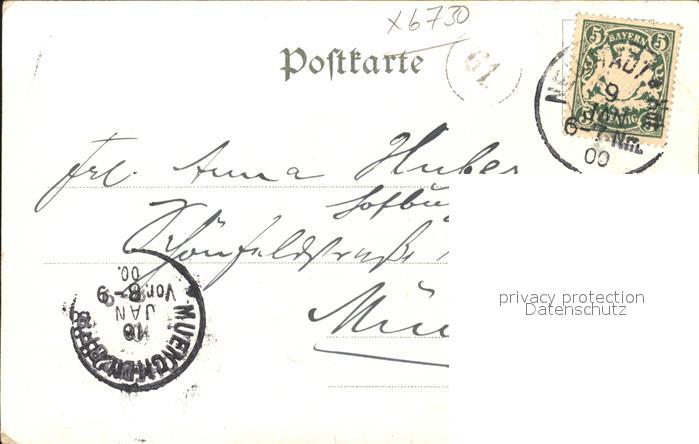 x 6730
Postkarte
61
BAYERN
5 5
PFENNIG
9
JAN
6-7 Nm.
00
Frl. Anna Huber
Schönfeldstraße
Mün
MUENCHEN
10
JAN
Vor. 8-9
00.
privacy protection
Datenschutz